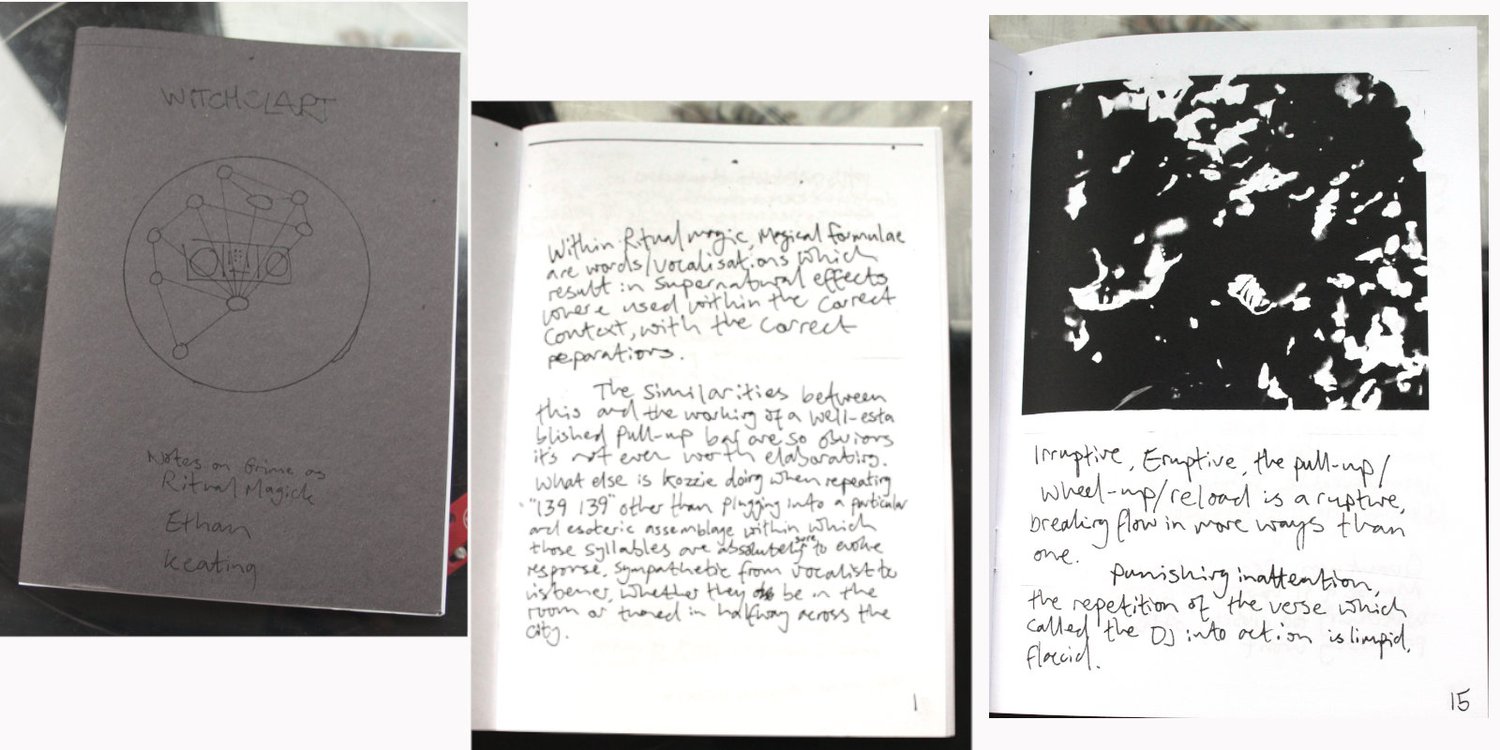 WITCHCLART
Notes on Grime as
Ritual Magick
Ethan
Keating
Within Ritual magic, Magical formulae
are words/vocalisations which
result in supernatural effects
where used within the correct
context, with the correct
peparations.
The similarities between
this and the working of a well-esta
blished pull-up bar are so obvious
it's not even worth elaborating.
What else is Kozzie doing when repeating
"139 139" other than plugging into a particular
and esoteric assemblage within which
those syllables are absolutely sure to evoke
response, sympathetic from vocalist to
listener, whether they be in the
room or tuned in halfway across the
city.
1
Irruptive, Eruptive, the pull-up/
wheel-up/reload is a rupture,
breaking flow in more ways than
one.
Punishing inattention,
the repetition of the verse which
called the DJ into action is limpid,
flaccid.
15